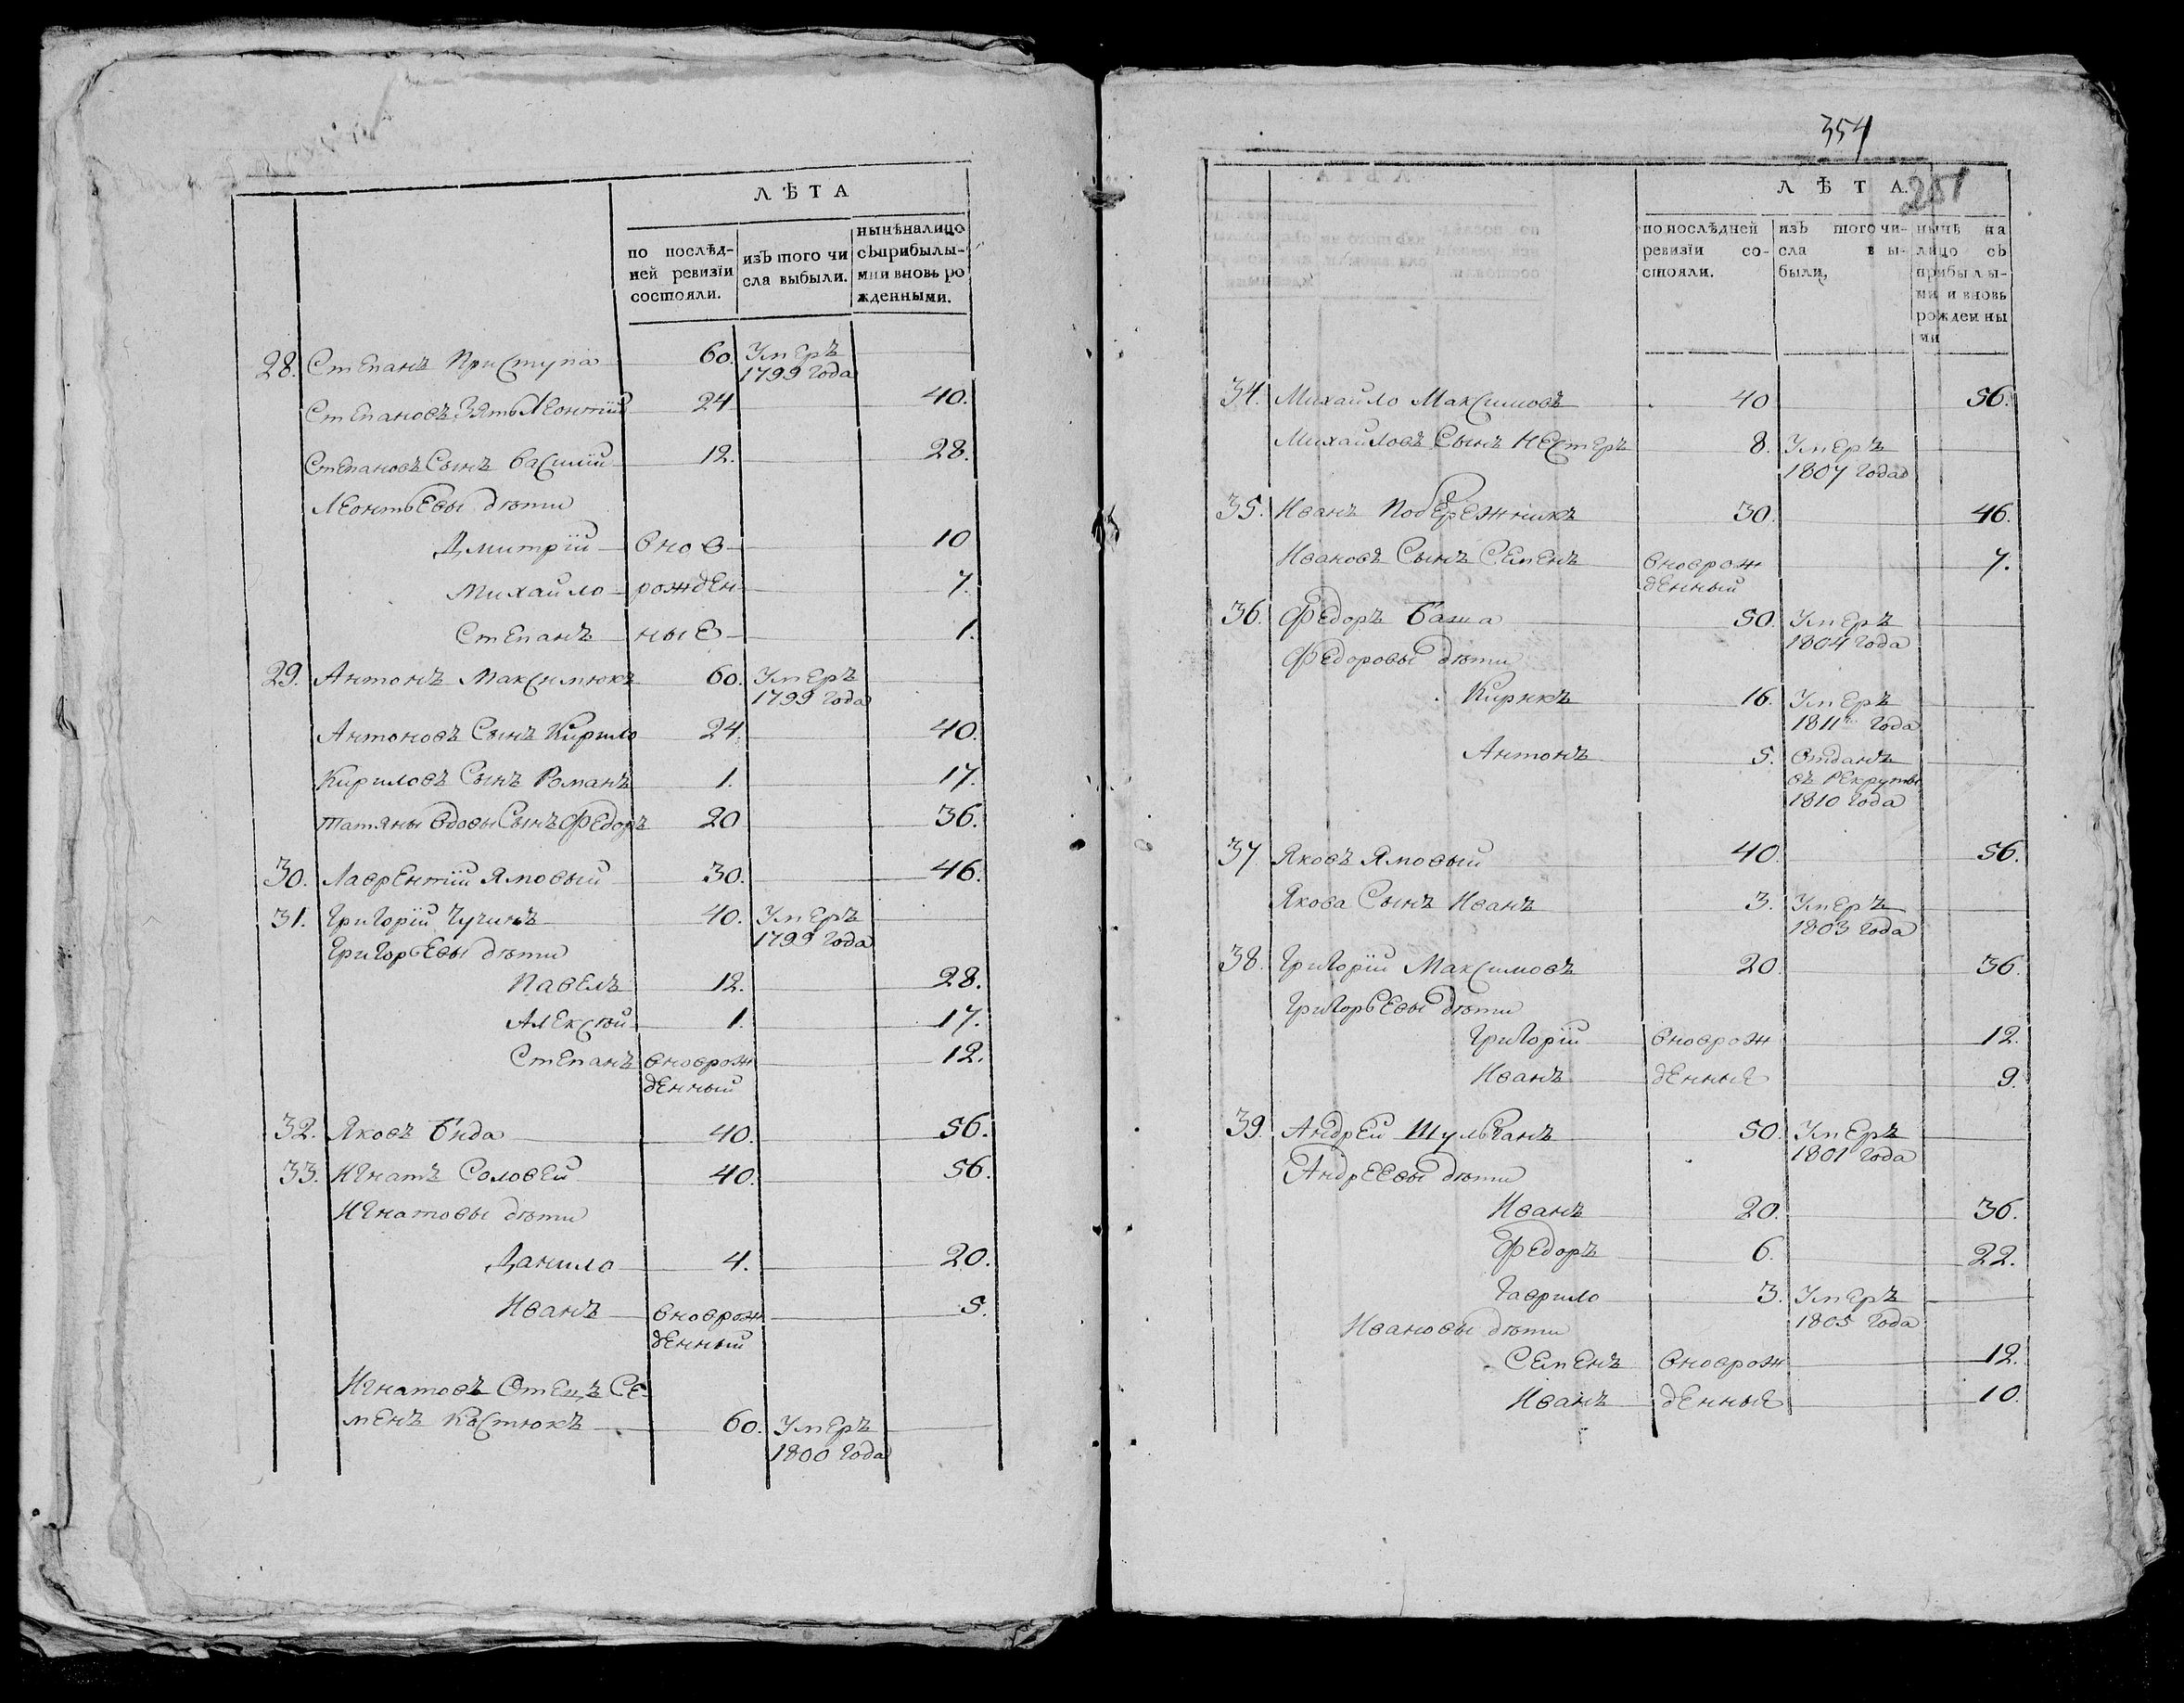 ЛѢТА
по послѣд-
ней ревизіи
состояли.
изЪ того чи
сла выбыли.
нынѣ на лицо
сЪ прибылы-
ми и вновь ро
жденными.
28. Степанъ Приступа 60. Умеръ
1799 года
Степановъ Зять Леонтій 24 40.
Степановъ Сынъ Василій 12. 28.
Леонтьевы дѣти
Дмитрій внов 10
Михайло рожден 7.
Степанъ ные 1.
29. Антонъ Максимюкъ 60. Умеръ
1799 года
Антоновъ Сынъ Кирило 24. 40.
Кириловъ Сынъ Романъ 1. 17.
Татяны вдовы Сынъ Федоръ 20 36.
30. Лаврентій Ямовый 30. 46.
31. Григорій Чучинъ 40. Умеръ
1799 года
Григорьевы дѣти
Павелъ 12. 28.
Алексѣй 1. 17.
Степанъ вноврож 12.
денный
32. Яковъ Бида 40. 56.
33. Игнатъ Соловей 40. 56.
Игнатовы дѣти
Данило 4. 20.
Иванъ вноврож 5.
денный
Игнатовъ Отецъ Се
менъ Костюкъ 60. Умеръ
1800 года
354
251
ЛѢТА.
по послѣдней
ревизіи со-
стояли.
изЪ того чи-
сла вы-
были,
нынѣ на
лицо сЪ
прибылы-
ми и вновь
рожденны
ми
34. Михайло Максимовъ 40 56.
Михайловъ Сынъ Нестеръ 8. Умеръ
1807 года
35. Иванъ Побережникъ 30. 46.
Ивановъ Сынъ Семенъ вноврож 7.
денный
36. Федоръ Баша 50. Умеръ
1804 года
Федоровы дѣти
Кирикъ 16. Умеръ
1811 года
Антонъ 5. Отданъ
въ рекруты
1810 года
37. Яковъ Ямовый 40. 56.
Якова Сынъ Иванъ 3. Умеръ
1803 года
38. Григорій Максимовъ 20. 36.
Григорьевы дѣти
Григорій вноврож 12.
Иванъ денные 9.
39. Андрей Шульганъ 50. Умеръ
1801 года
Андреевы дѣти
Иванъ 20. 36.
Федоръ 6. 22.
Гаврило 3. Умеръ
1805 года
Ивановы дѣти
Семенъ вноврож 12.
Иванъ денные 10.